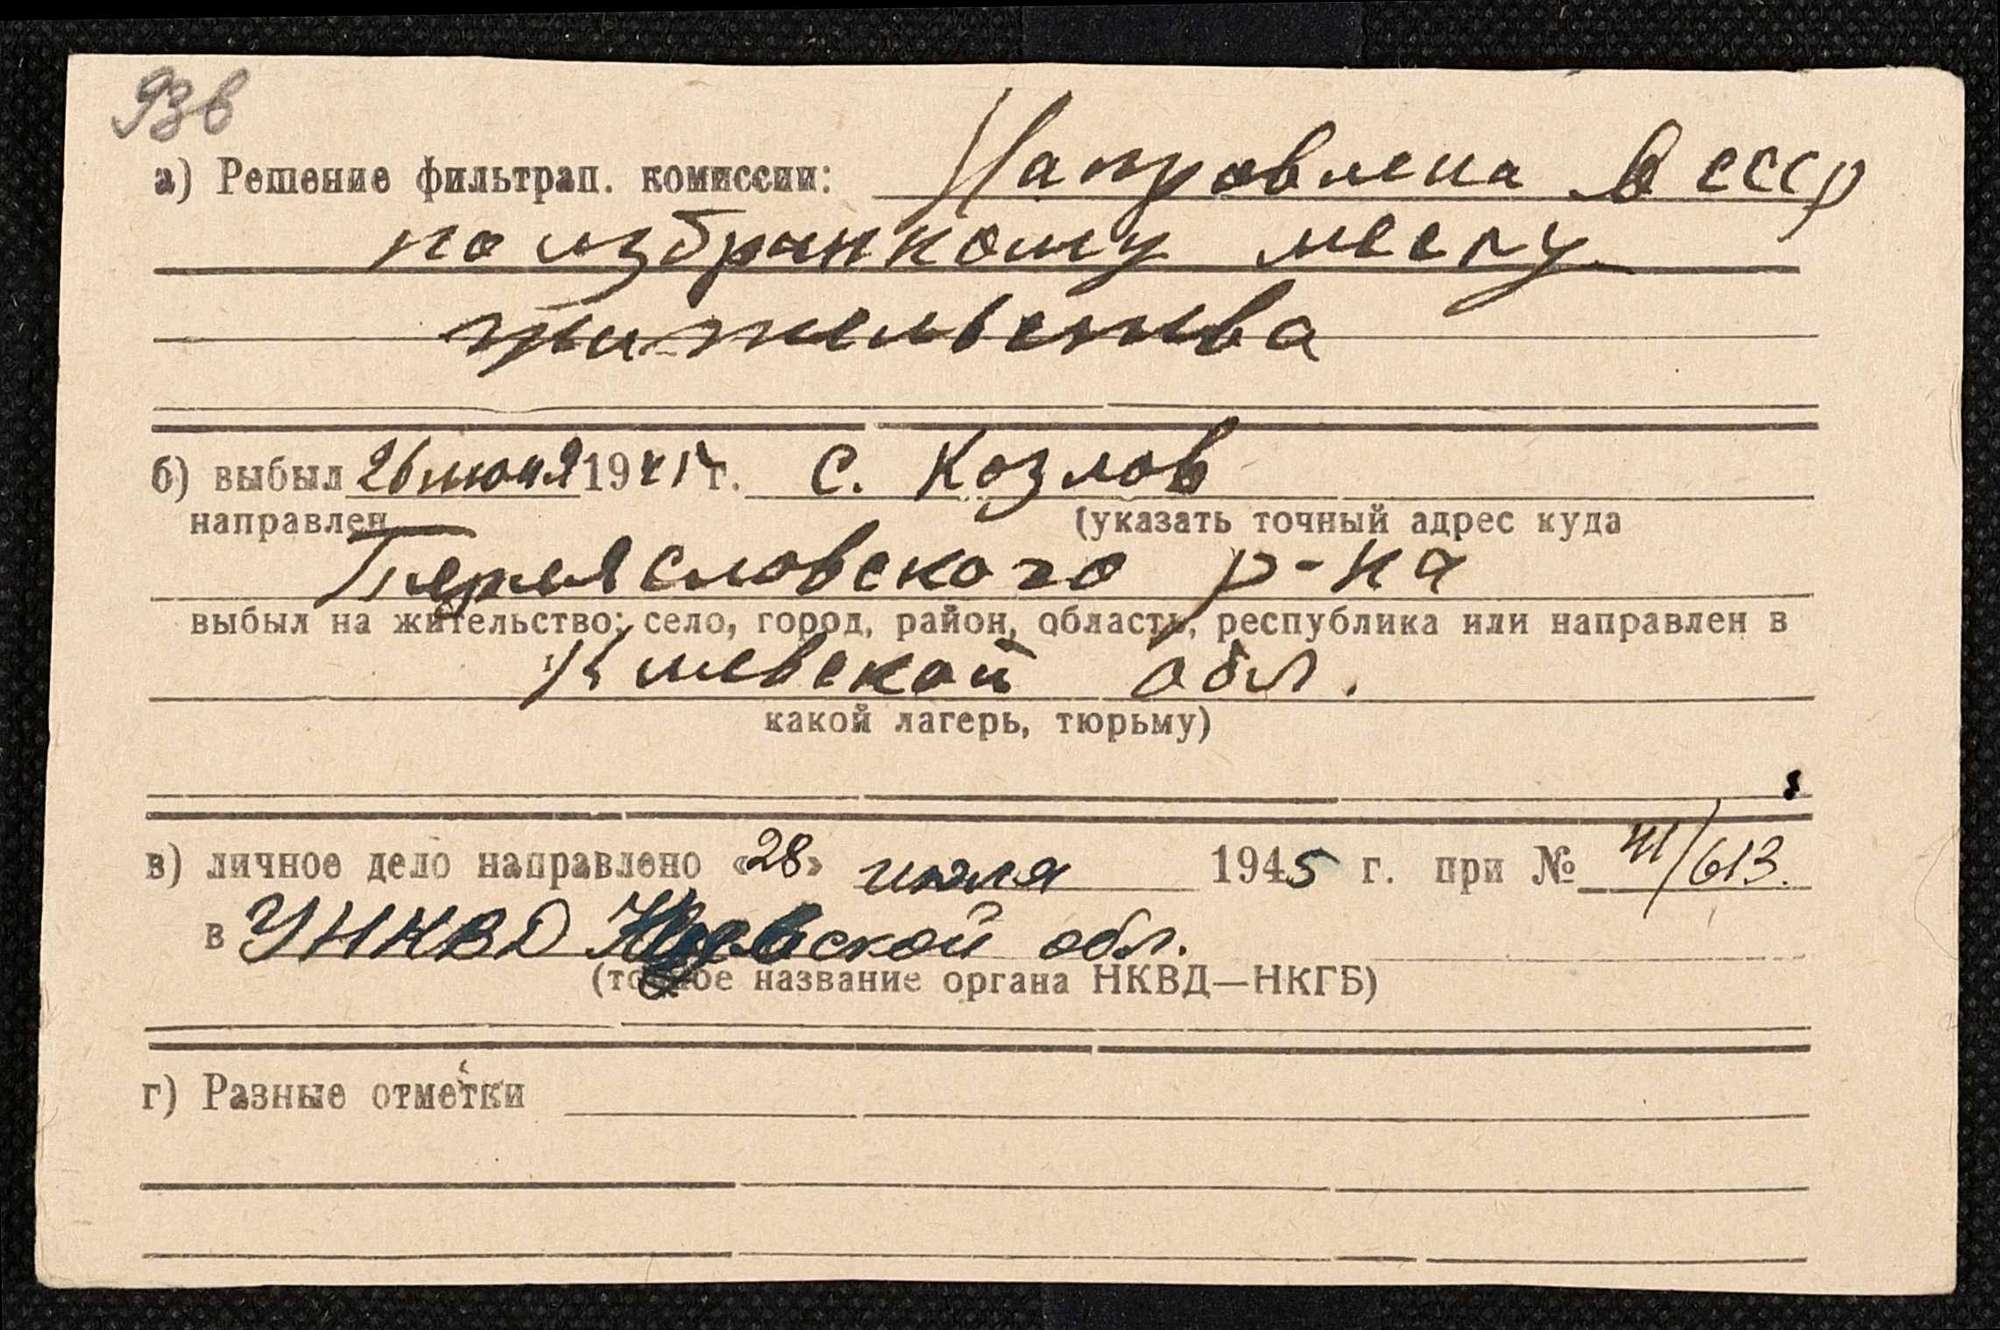 93в
а) Решение фильтрац. комиссии: Направлена в СССР
по избранному месту
жительства
б) выбыл 26 июня 1945 г. с. Козлов
направлен (указать точный адрес куда
Переясловского р-на
выбыл на жительство: село, город, район, область, республика или направлен в
Киевской обл.
какой лагерь, тюрьму)
в) личное дело направлено «28» июля 1945 г. при № III/613.
в УНКВД Киевской обл.
(точное название органа НКВД—НКГБ)
г) Разные отметки